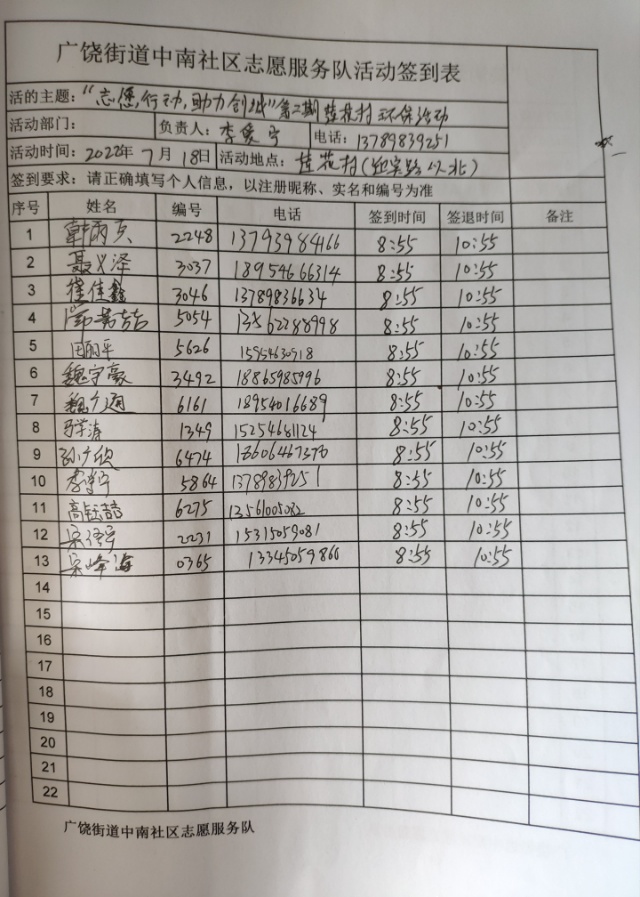 广饶街道中南社区志愿服务队活动签到表
活的主题："志愿行动,助力创城"第二期桂花村环保活动
活动部门： 负责人：李 宁 电话：13789839251
活动时间：2022年7月18日 活动地点：桂花村( 以北)
签到要求：请正确填写个人信息，以注册昵称、实名和编号为准
序号 姓名 编号 电话 签到时间 签退时间 备注
1 2248 13793984166 8:55 10:55
2 聂义泽 3037 18954666314 8:55 10:55
3 崔佳鑫 3046 13789836634 8:55 10:55
4 5054 13562288998 8:55 10:55
5 田丽平 5626 8:55 10:55
6 魏宇豪 3492 18865985996 8:55 10:55
7 6161 18954016689 8:55 10:55
8 1349 15254681124 8:55 10:55
9 6474 8:55 10:55
10 5864 8:55 10:55
11 高钰喆 6275 8:55 10:55
12 2231 15315059081 8:55 10:55
13 宋峰海 0365 13345059866 8:55 10:55
14
15
16
17
18
19
20
21
22
广饶街道中南社区志愿服务队